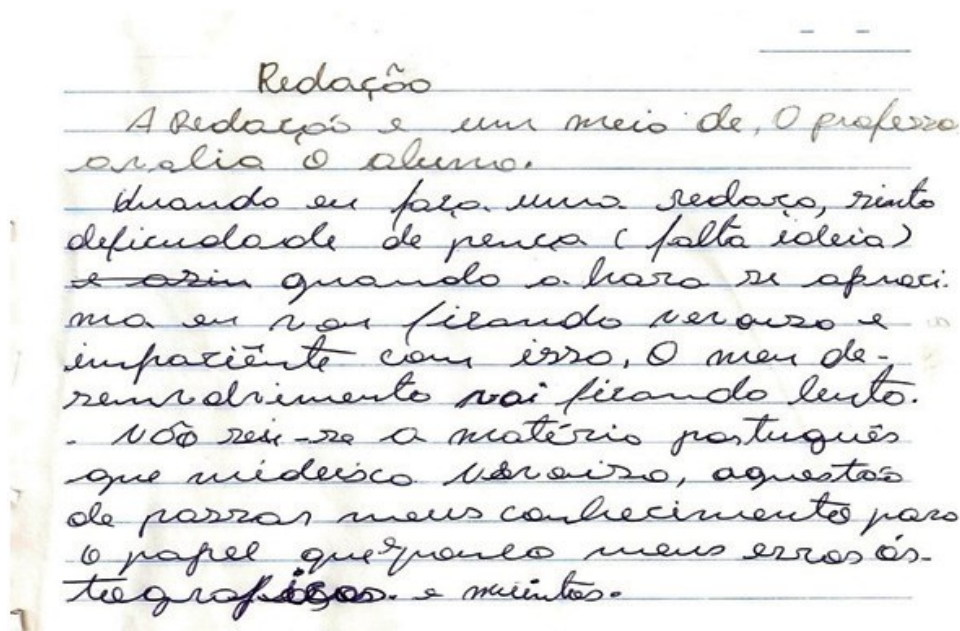 Redação
A Redação e um meio de, O professo
avalia o aluno.
Quando eu faço uma redaço, sinto
deficudade de pença (falta ideia)
e asin quando a hora se aproci-
ma eu vou ficando nervouso e
impaciênte com isso, O meu de-
senvolvimento vai ficando lento.
. Não sei-se a matério português
que mideixo nervoiso, aquestão
de passar meus conhecimento para
o papel meus erros ós-
tograficos. e muintos.